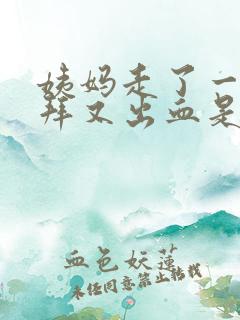 姨妈走了一
拜又出血是
血色妖莲
未经同意禁止转载